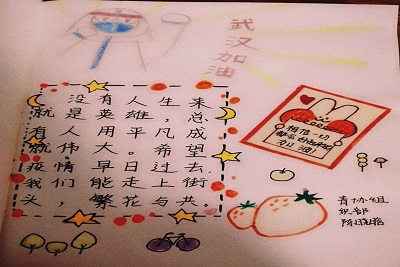 武汉
加油
没有人生来
就是英雄，总
有人用平凡成
就伟大。希望
疫情早日过去，
我们能走上街
头，繁花与共。
相信一切
都会好起来的
加油!
青协组
织部